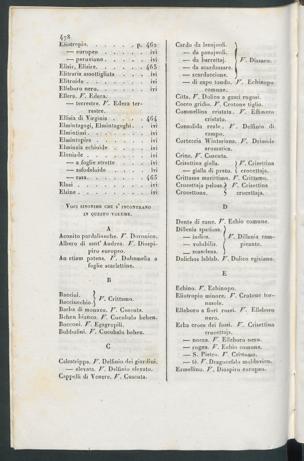 478
Eliotropio. . . . . . . . p. 462
— europeo . . . . . . . ivi
— peruviano . . . . . . ivi
Elisir, Elisire. . . . . . . 463
Elitraria assottigliata . . . . ivi
Elitroide . . . . . . . . ivi
Elleboro nero. . . . . . . ivi
Ellera. V. Edera.
— terrestre. V. Edera terrestre.
Ellisia di Virginia . . . . . 464
Elmintagogi, Elmintagoghi . . ivi
Elmintiasi . . . . . . . . ivi
Elmintopiro . . . . . . . ivi
Elminzia echioide . . . . . ivi
Eloniade . . . . . . . . ivi
— a foglie strette . . . . ivi
— asfodeloide . . . . . . ivi
— rasa . . . . . . . . 465
Elosi . . . . . . . . . ivi
Elzine . . . . . . . . . ivi
VOCI SINONIME CHE S' INCONTRANO
IN QUESTO VOLUME.
A
Aconito pardalianche. V. Doronico.
Albero di sant' Andrea. V. Diospiro europeo.
foglie scarlattine.
B
Baccini.
Baciucchio } V. Crittamo.
Barba di monaco. V. Cuscuta.
Behen bianco. V. Cucubalo behen.
Bocconi. V. Egagropili.
Bubbolini. V. Cucubalo behen.
C
Calcatreppa. V. Delfinio dei giardini.
— elevata. V. Delfinio elevato.
Cappelli di Venere. V. Cuscuta.
Cardo da lanajuoli.
— da panajuoli.
— da borrettaj.
— da scardassare.
— scardaccione. } V. Dissaco.
— di capo tondo. V. Echinopo
comune.
Citta. V. Dolico a gusci rugosi.
Cocco gridio. V. Crotone tiglio.
Commelina cristata. V. Elfinero
cristato.
Consolida reale. V. Delfinio di
campo.
Corteccia Winteriana. V. Drimide
aromatica.
Crine. V. Cuscuta.
Crisettina gialla. } V. Crisettina
— gialla di prato. } crocettaja.
Crittamo marittimo. V. Crittamo.
Crocettaja pelosa } V. Crisettina
Crocettone. } crocettaja.
D
Dente di cane. V. Echio comune.
Dillenia speciosa.
— indica.
— volubilis.
— scandens. } V. Dillenia rampicante.
Dolichos lablab. V. Dolico egiziano.
E
Echino. V. Echinopo.
Eliotropio minore. V. Crotone tornasole.
Elleboro a fiori rossi. V. Elleboro
nero.
Erba croce dei fossi. V. Crisettina
crocettaja.
— nocca. V. Elleboro nero.
— rogna. V. Echio comune.
— S. Pietro. V. Crittamo.
— tè. V. Dragocefalo moldavico.
Ermellino. V. Diospiro europeo.